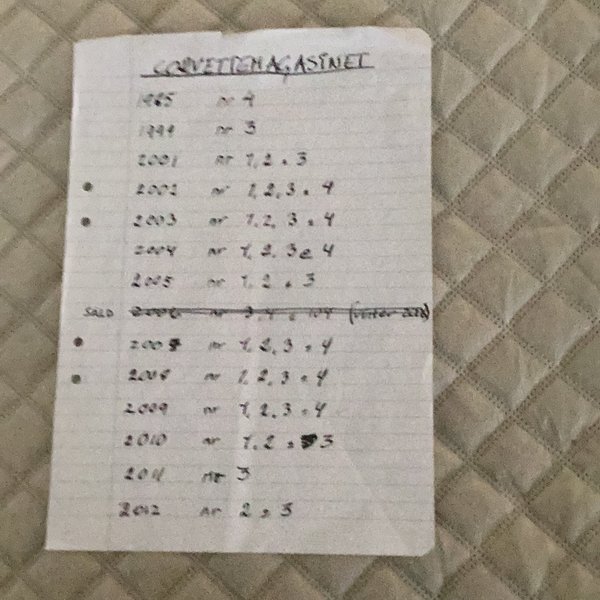 CORVETTEMAGASINET
1985 nr 4
1999 nr 3
2001 nr 1, 2 & 3
2002 nr 1, 2, 3 & 4
2003 nr 1, 2, 3 & 4
2004 nr 1, 2, 3 & 4
2005 nr 1, 2 & 3
SÅLD 2006 nr 3, 4
2007 nr 1, 2, 3 & 4
2008 nr 1, 2, 3 & 4
2009 nr 1, 2, 3 & 4
2010 nr 1, 2 & 3
2011 nr 3
2012 nr 2 & 3